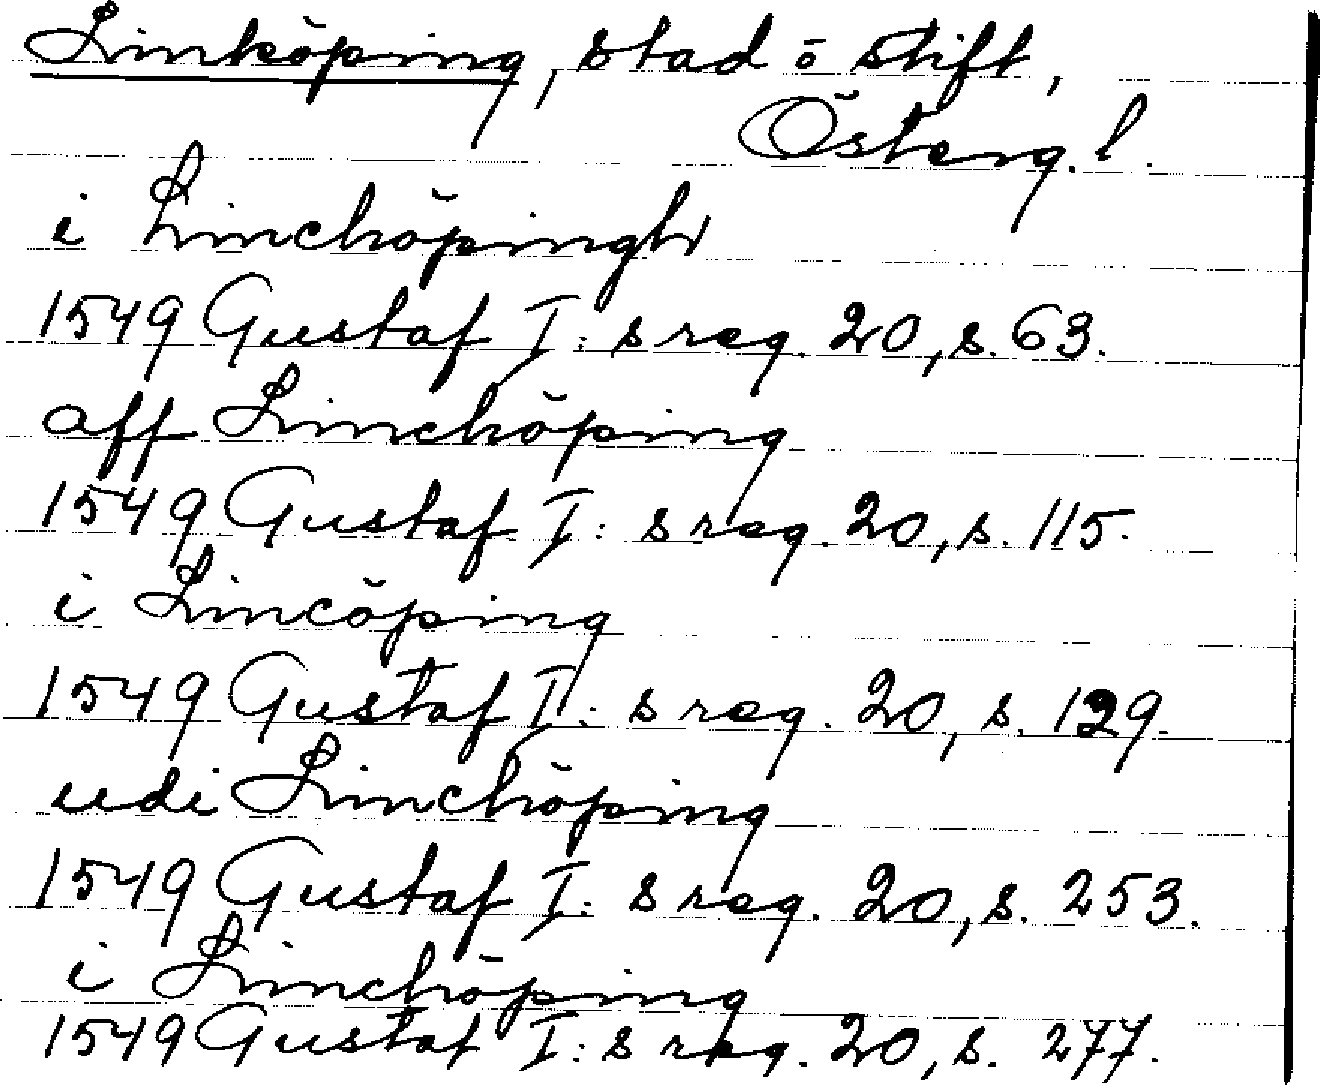 Linköping, stad o stift,
Österg. l.
i Linchöpingh
1549 Gustaf I: s reg. 20, s. 63.
aff Linchöping
1549 Gustaf I: s reg. 20, s. 115.
i Lincöping
1549 Gustaf I: s reg. 20, s. 129.
udi Linchöping
1549 Gustaf I: s reg. 20, s. 253.
i Linchöping
1549 Gustaf I: s reg. 20, s. 277.